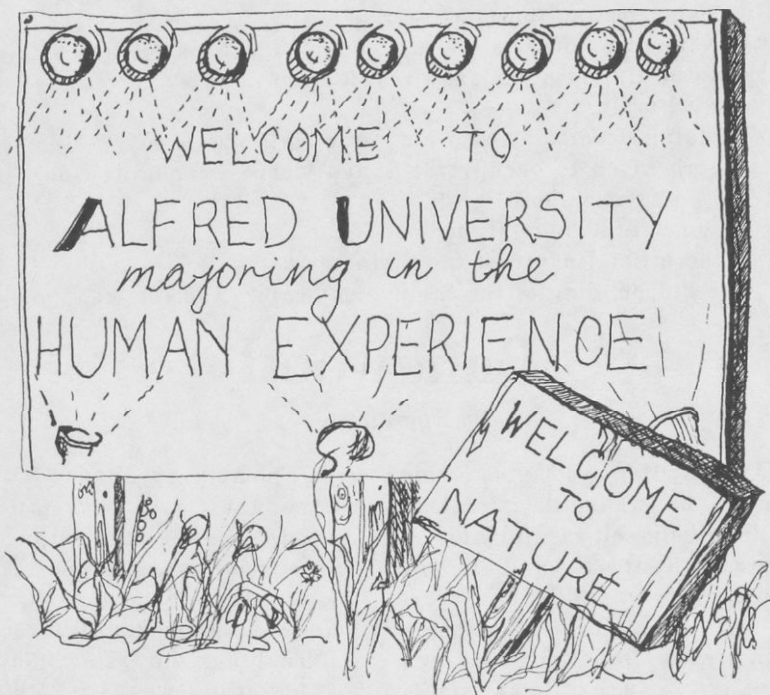 WELCOME TO
ALFRED UNIVERSITY
majoring in the
HUMAN EXPERIENCE
WELCOME
TO
NATURE